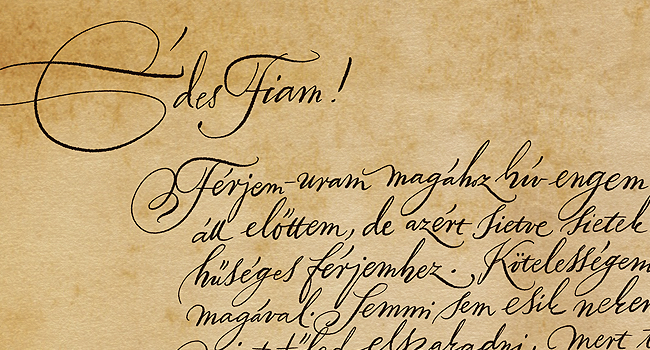 Édes Fiam!
Férjem-uram magához hív engem
áll előttem, de azért sietve sietek
hűséges férjemhez. Kötelességem
magával. Semmi sem esik nekem
tőled elszakadni. Mert